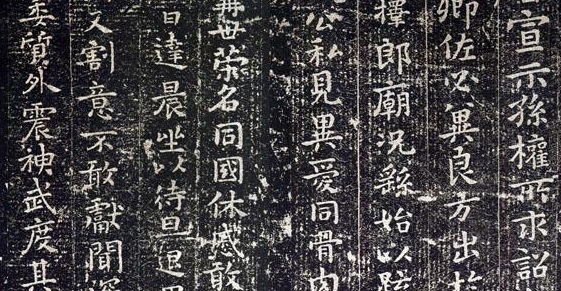 宣示孫權所求詔
卿佐必冀良方出於
擇郎廟況繇始以疏
公私見異愛同骨肉
再世榮名同國休慼敢
日達晨坐以待旦退思
又割意不敢獻聞深
委質外震神武度其